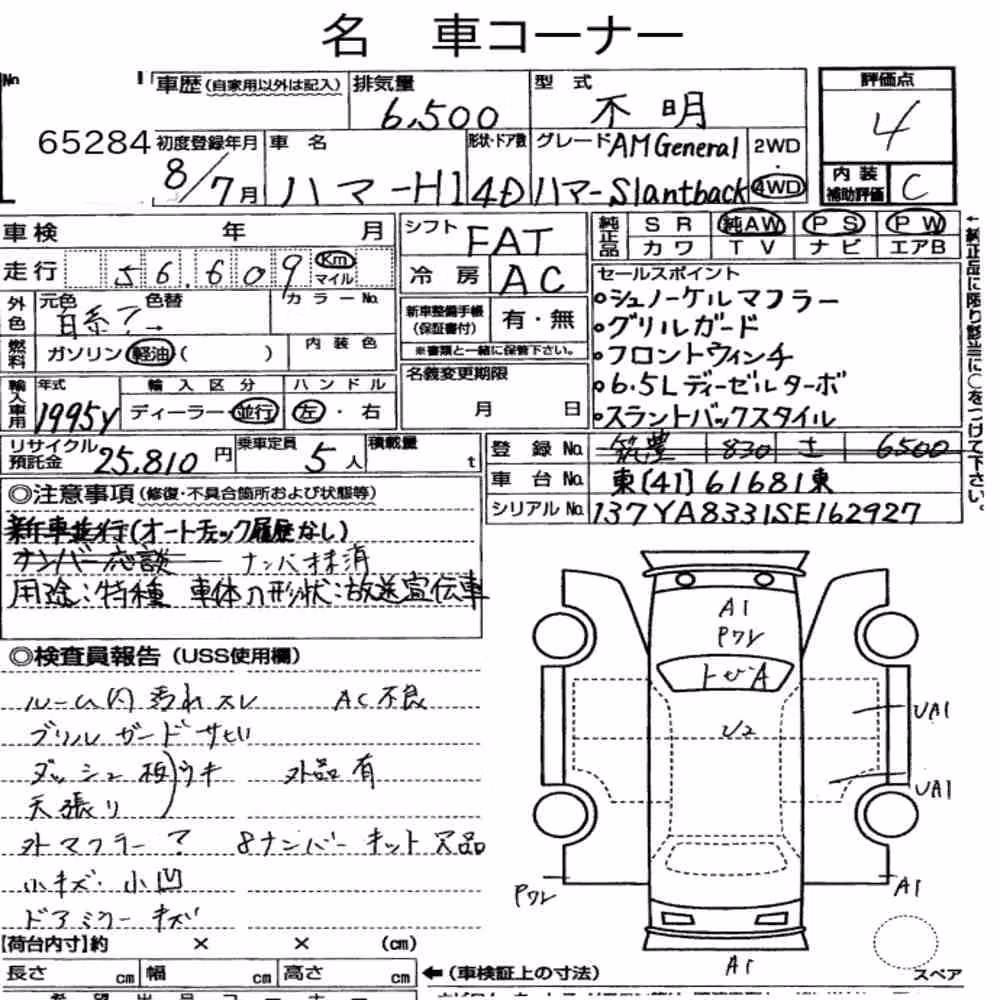 名 車コーナー
No.
65284
車歴(自家用以外は記入)
排気量
6,500
型 式
不明
評価点
4
初度登録年月
8/7月
車 名
ハマーH1
形状・ドア数
4D
グレード AM General
ハマーSlantback
2WD
・
4WD
内 装
補助評価
C
車検 年 月
走行 56,609 Km マイル
外色 元色 色替 カラーNo.
白系?→
燃料 ガソリン・軽油( ) 内 装 色
輸入車用 年式 輸 入 区 分 ハ ン ド ル
1995y ディーラー・並行 左・右
シフト FAT
冷 房 AC
新車整備手帳
(保証書付) 有・無
※書類と一緒に保管下さい。
名義変更期限
月 日
純正品 S R 純AW P S P W
カワ T V ナ ビ エアB
←純正品に限り該当に○をつけて下さい。
セールスポイント
・シュノーケルマフラー
・グリルガード
・フロントウィンチ
・6.5Lディーゼルターボ
・スラントバックスタイル
リサイクル
預託金 25,810円
乗車定員 5人
積載量 t
登 録 No. 筑豊 830 さ 6500
車 台 No. 東[41]61681東
シリアル No. 137YA8331SE162927
◎注意事項(修復・不具合箇所および状態等)
新車並行(オートチェック履歴なし)
ナンバー応談 ナンバー抹消
用途:特種 車体の形状:放送宣伝車
◎検査員報告(USS使用欄)
ルーム内 汚れ スレ AC不良
グリル ガード サビ
ダッシュ板)ウキ 外品有
天張り
外マフラー ? 8ナンバー キット欠品
小キズ・小凹
ドアミラー キズ
A1
Pワレ
トビA
UA1
UA1
Pワレ
A1
A1
スペア
【荷台内寸】約 × × (cm)
長さ cm 幅 cm 高さ cm
←(車検証上の寸法)